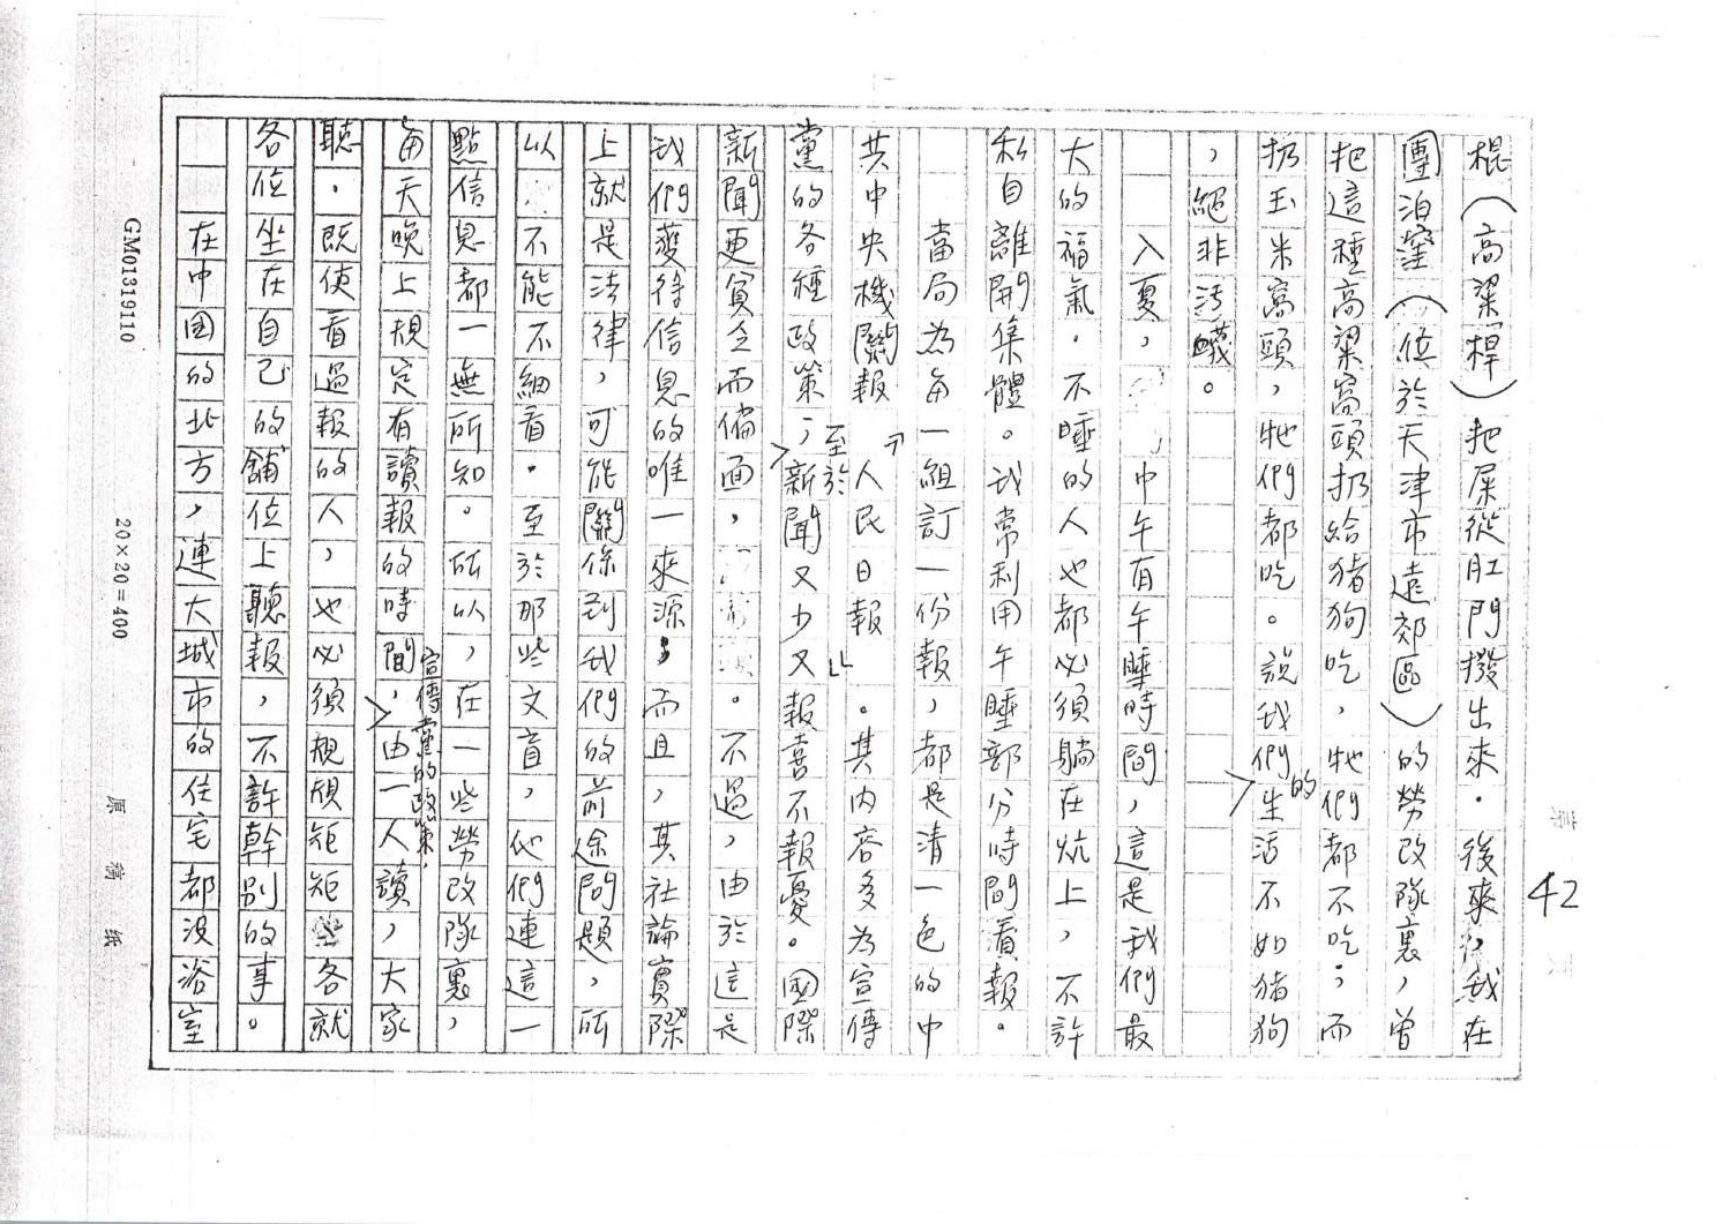 42
棍（高粱桿）把屎從肛門撥出來．後來，我在
團泊窪（位於天津市遠郊區）的勞改隊裏，曾
把這種高粱窩頭扔給猪狗吃，牠們都不吃；而
扔玉米窩頭，牠們都吃。說我們的生活不如猪狗
，絕非污衊。
入夏，中午有午睡時間，這是我們最
大的福氣．不睡的人也都必須躺在炕上，不許
私自離開集體。我常利用午睡部分時間看報。
當局為每一組訂一份報，都是清一色的中
共中央機關報『人民日報』。其内容多為宣傳
黨的各種政策，至於新聞又少又報喜不報憂。國際
新聞更貧乏而偏面，。不過，由於這是
我們獲得信息的唯一來源；而且，其社論實際
上就是法律，可能關係到我們的前途問題，所
以不能不細看．至於那些文盲，他們連這一
點信息都一無所知。所以，在一些勞改隊裏，
每天晚上規定有讀報的時間，宣傳黨的政策，由一人讀，大家
聽．既使看過報的人，也必須規規矩矩坐各就
各位坐在自己的舖位上聽報，不許幹別的事。
在中國的北方，連大城市的住宅都沒浴室
GM01319110
20×20=400
原稿紙